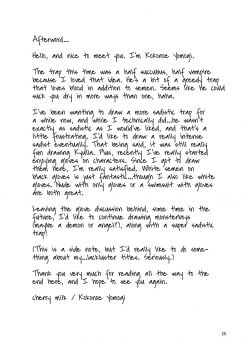 Afterword...
Hello, and nice to meet you. I'm Kokonoe Yomogi.
The trap this time was a half succubus, half vampire
because I loved that idea. He's a bit of a greedy trap
that loves blood in addition to semen. Seems like he could
suck you dry in more ways than one, haha.
I've been wanting to draw a more sadistic trap for
a while now, and while I technically did...he wasn't
exactly as sadistic as I would've liked, and that's a
little frustrating. I'd like to draw a really intense
sadist eventually. That being said, it was still really
fun drawing Kyulla. Plus, recently I've really started
enjoying gloves on characters. Since I got to draw
them here, I'm really satisfied. White semen on
black gloves is just fantastic...though I also like white
gloves. Nude with only gloves or a swimsuit with gloves
are both great.
Leaving the glove discussion behind, some time in the
future, I'd like to continue drawing monsterboys
(maybe a demon or angel?), along with a super sadistic
trap!
(This is a side note, but I'd really like to do some-
thing about my...lackluster titles. Seriously.)
Thank you very much for reading all the way to the
end here, and I hope to see you again.
cherry milk / Kokonoe Yomogi